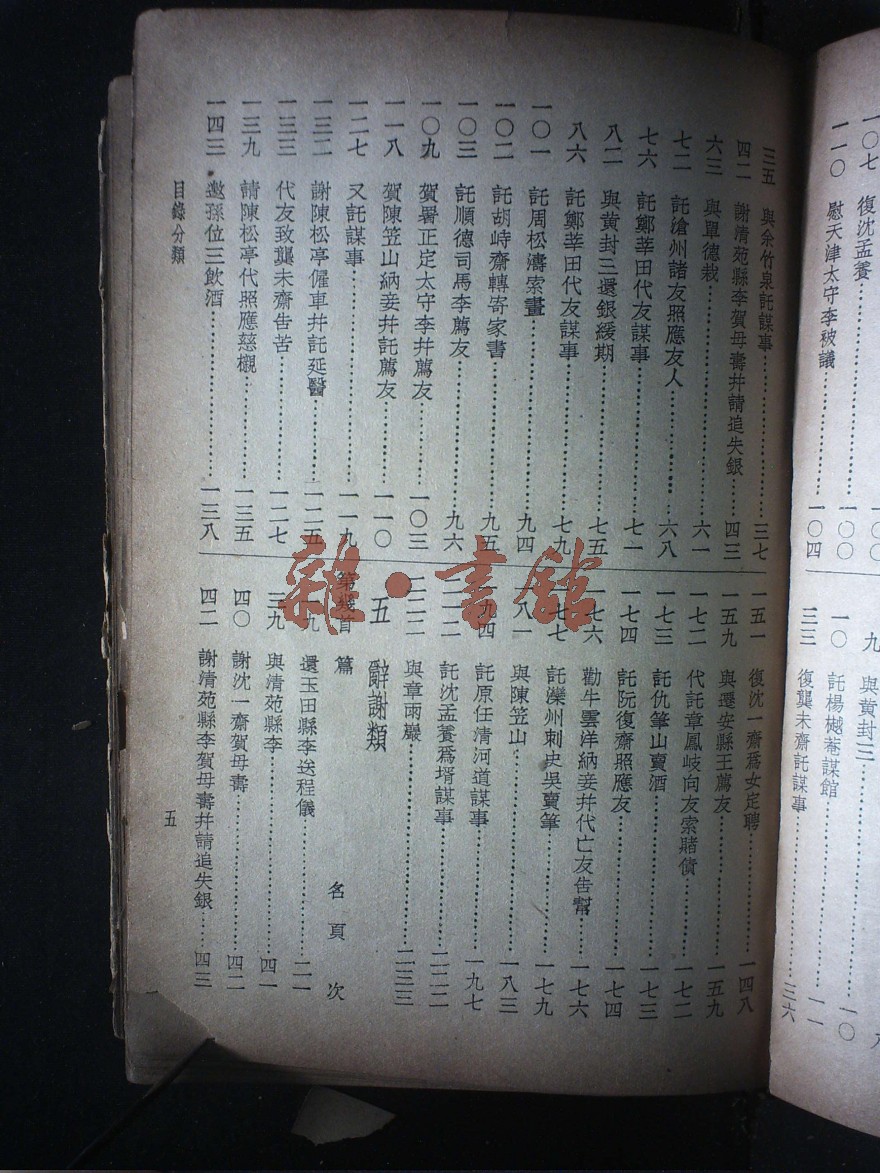 一〇七 復沈孟養 一〇〇
一一〇 慰天津太守李被議 一〇四
九 與黃封三 一〇
一〇 託楊樾菴謀館 一一
三三 復龔未齋託謀事 三六
三五 與余竹泉託謀事 三七
四二 謝清苑縣李賀母壽幷請追失銀 四三
六三 與單德栽 六一
七二 託滄州諸友照應友人 六八
七六 託鄭莘田代友謀事 七一
八二 與黃封三還銀緩期 七五
八六 託鄭莘田代友謀事 七九
一〇一 託周松濤索畫 九四
一〇二 託胡峙齋轉寄家書 九五
一〇三 託順德司馬李薦友 九六
一〇九 賀署正定太守李幷薦友 一〇三
一一八 賀陳笠山納妾幷託薦友 一一〇
一二七 又託謀事 一一九
一三二 謝陳松亭僱車幷託延醫 一二五
一三三 代友致龔未齋告苦 一二七
一三九 請陳松亭代照應慈櫬 一三五
一四三 邀孫位三飲酒 一三八
一五一 復沈一齋爲女定聘 一四八
一五九 與遷安縣王薦友 一五九
一七二 代託章鳳岐向友索賭債 一七二
一七三 託仇筆山賣酒 一七三
一七四 託阮復齋照應友 一七四
一七六 勸牛雲洋納妾幷代亡友告幫 一七六
一七七 託灤州刺史吳賣筆 一七九
一八一 與陳笠山 一八三
一九四 託原任清河道謀事 一九七
託沈孟養爲壻謀事 二二二
與章雨巖 二三三
五 辭謝類
第幾首 篇名 頁次
一九 還玉田縣李送程儀 二一
三九 與清苑縣李 四一
四〇 謝沈一齋賀母壽 四二
四二 謝清苑縣李賀母壽幷請追失銀 四三
目錄分類
五
雜·書館